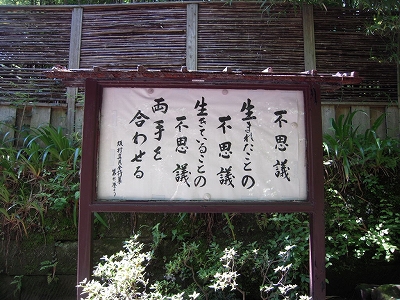 不思議
生まれたことの
不思議
生きていることの
不思議
両手を
合わせる